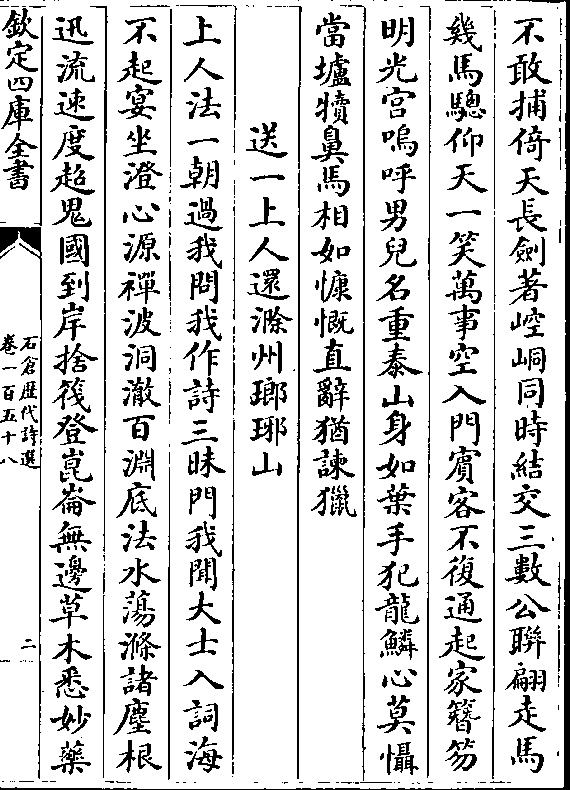 不敢捕倚天長劍著崆峒同時結交三數公聯翩走馬
幾馬驄仰天一笑萬事空入門賓客不復通起家簪笏
明光宮嗚呼男兒名重泰山身如葉手犯龍鱗心莫懾
當壚犢鼻馬相如慷慨直辭猶諫獵
送一上人還滁州瑯琊山
上人法一朝過我問我作詩三昧門我聞大士入詞海
不起宴坐澄心源禪波洞澈百淵底法水蕩滌諸塵根
迅流速度超鬼國到岸捨筏登崑崙無邊草木悉妙藥
欽定四庫全書
石倉歷代詩選
卷一百五十八
二